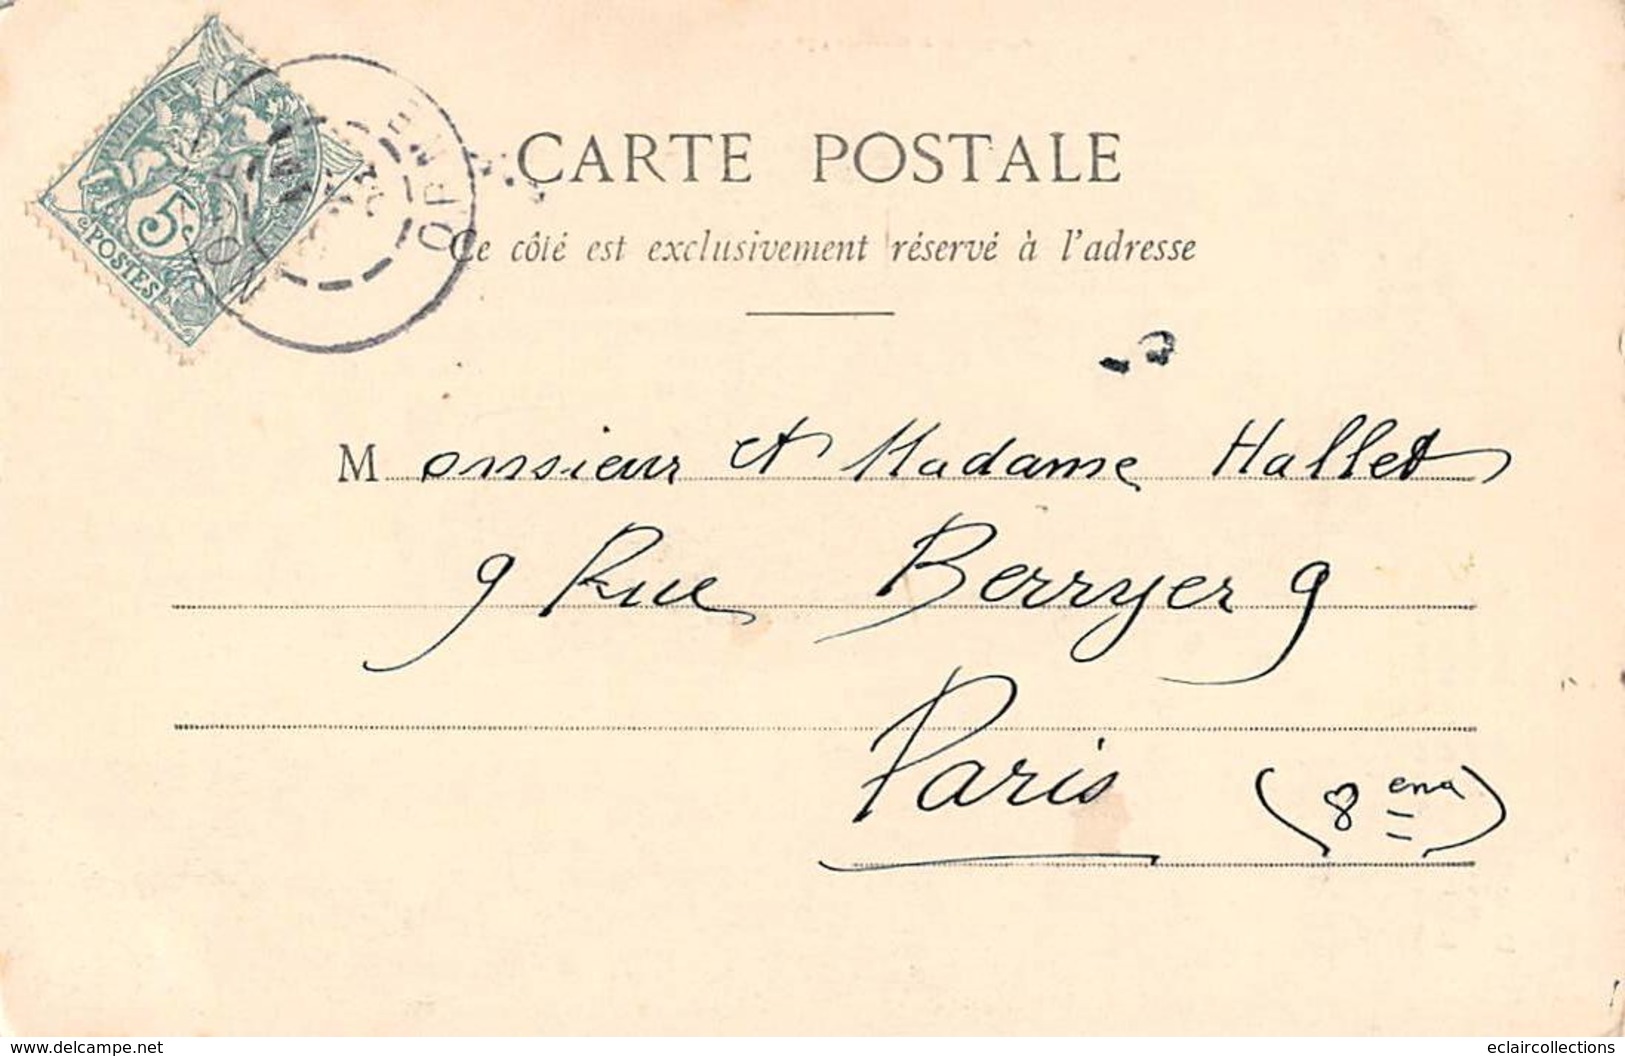 CARTE POSTALE
Ce côté est exclusivement réservé à l'adresse
5c
POSTES
ORNE
Monsieur et Madame Hallet
9 Rue Berryer 9
Paris (8ème)
www.delcampe.net
eclaircollections